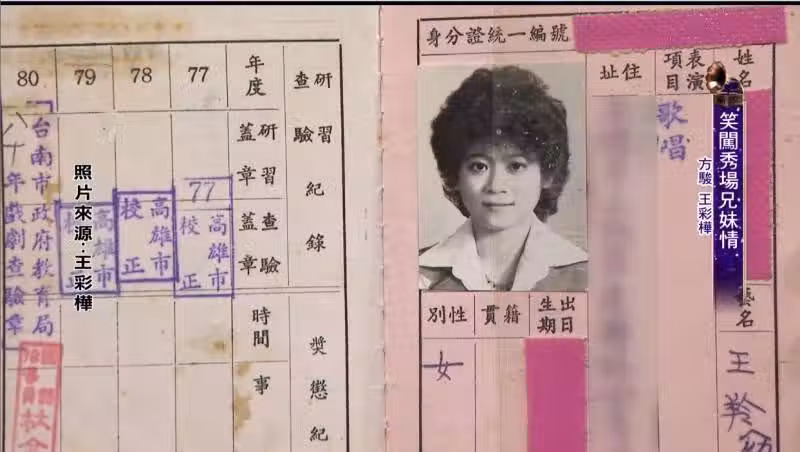 身分證統一編號
姓名
表演項目
歌唱
住址
藝名
王羚
出生日期
籍貫
性別
女
笑闖秀場兄妹情
方駿 王彩樺
研習查驗紀錄
年度
77
78
79
80
研習蓋章
查驗蓋章
77
高雄市校正
高雄市校正
高雄市校正
「台南市政府教育局
八十年戲劇查驗章」
獎懲紀
時間
事
照片來源:王彩樺